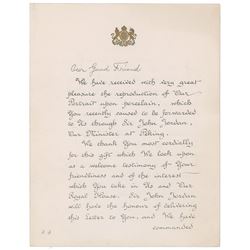 Dear Good Friend
We have received with very great
pleasure the reproduction of Our
Portrait upon porcelain, which
You recently caused to be forwarded
to Us through Sir John Jordan,
Our Minister at Peking.
We thank You most cordially
for this gift which We look upon
as a welcome testimony of Your
friendliness and of the interest
which You take in Us and Our
Royal House. Sir John Jordan
will have the honour of delivering
this Letter to You, and We have
commanded